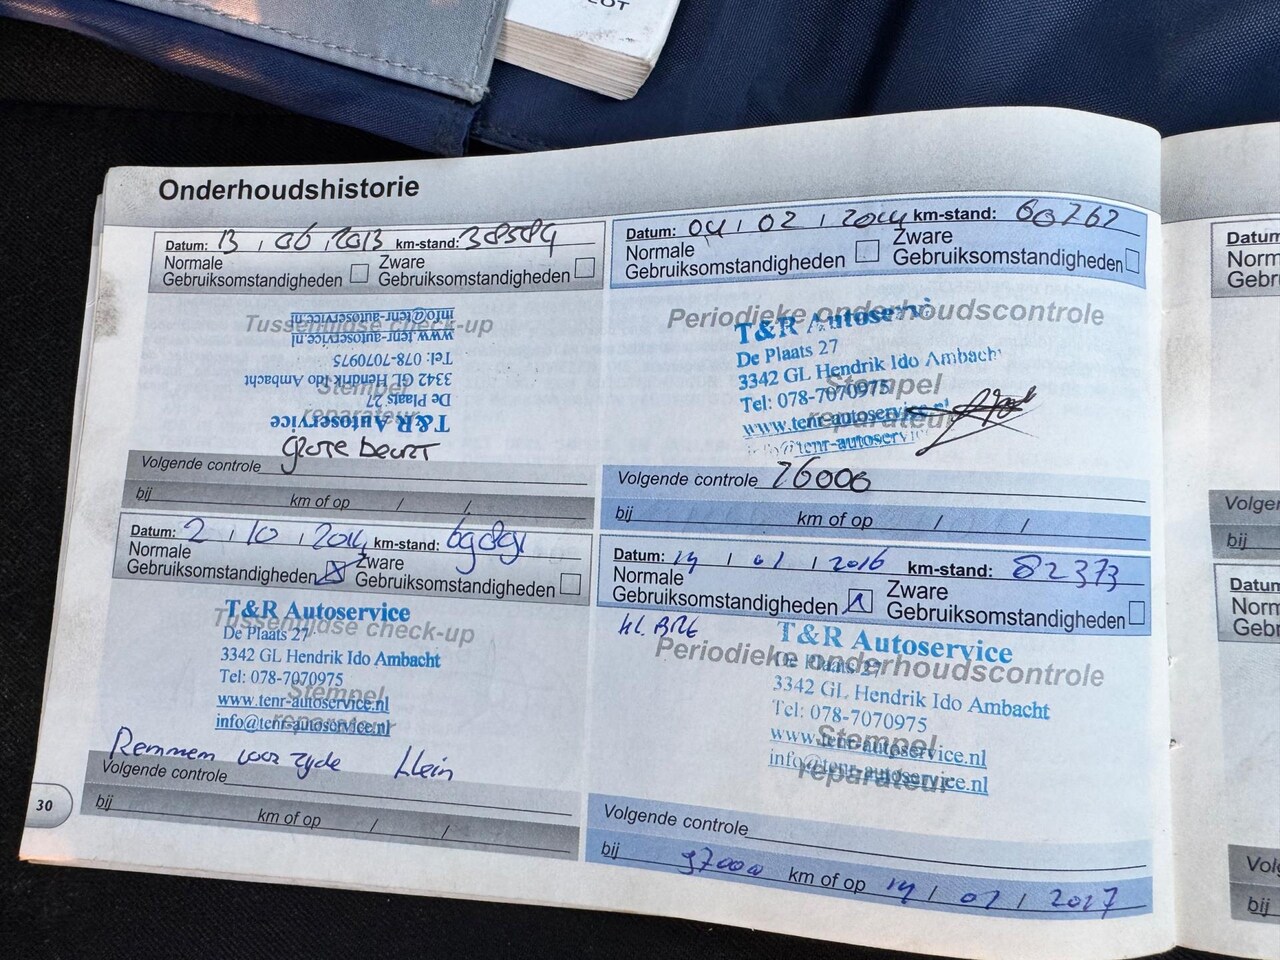 Onderhoudshistorie
Datum: 13 / 06 / 2013 km-stand: 38584
Normale Gebruiksomstandigheden
Zware Gebruiksomstandigheden
Tussentijdse check-up
Stempel
reparateur
T&R Autoservice
De Plaats 27
3342 GL Hendrik Ido Ambacht
Tel: 078-7070975
www.tenr-autoservice.nl
info@tenr-autoservice.nl
grote beurt
Volgende controle
bij km of op / /
Datum: 04 / 02 / 2014 km-stand: 60762
Normale Gebruiksomstandigheden
Zware Gebruiksomstandigheden
Periodieke onderhoudscontrole
Stempel
reparateur
T&R Autoservi
De Plaats 27
3342 GL Hendrik Ido Ambach
Tel: 078-7070975
www.tenr-autoservice.nl
info@tenr-autoservi
Volgende controle 76000
bij km of op / /
Datum: 2 / 10 / 2014 km-stand:
Normale Gebruiksomstandigheden
Zware Gebruiksomstandigheden
Tussentijdse check-up
Stempel
reparateur
T&R Autoservice
De Plaats 27
3342 GL Hendrik Ido Ambacht
Tel: 078-7070975
www.tenr-autoservice.nl
info@tenr-autoservice.nl
Remmem voor zyde klein
Volgende controle
bij km of op / /
Datum: 14 / 01 / 2016 km-stand: 82373
Normale Gebruiksomstandigheden
Zware Gebruiksomstandigheden
kl. BRE
Periodieke onderhoudscontrole
Stempel
reparateur
T&R Autoservice
De Plaats 27
3342 GL Hendrik Ido Ambacht
Tel: 078-7070975
www.tenr-autoservice.nl
info@tenr-autoservice.nl
Volgende controle
bij 97000 km of op 14 / 01 / 2017
30
Datum
Norm
Gebru
Volgen
bij
Datum
Norm
Gebru
Volg
bij